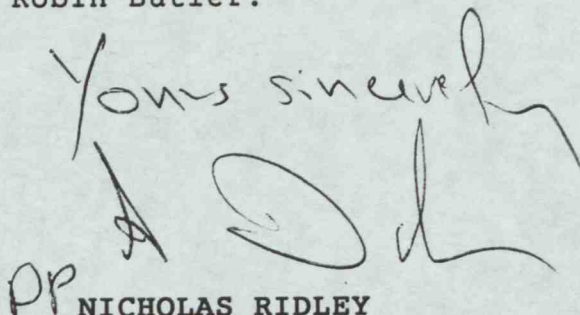 Robin Butler.
Yours sincerely
pp NICHOLAS RIDLEY